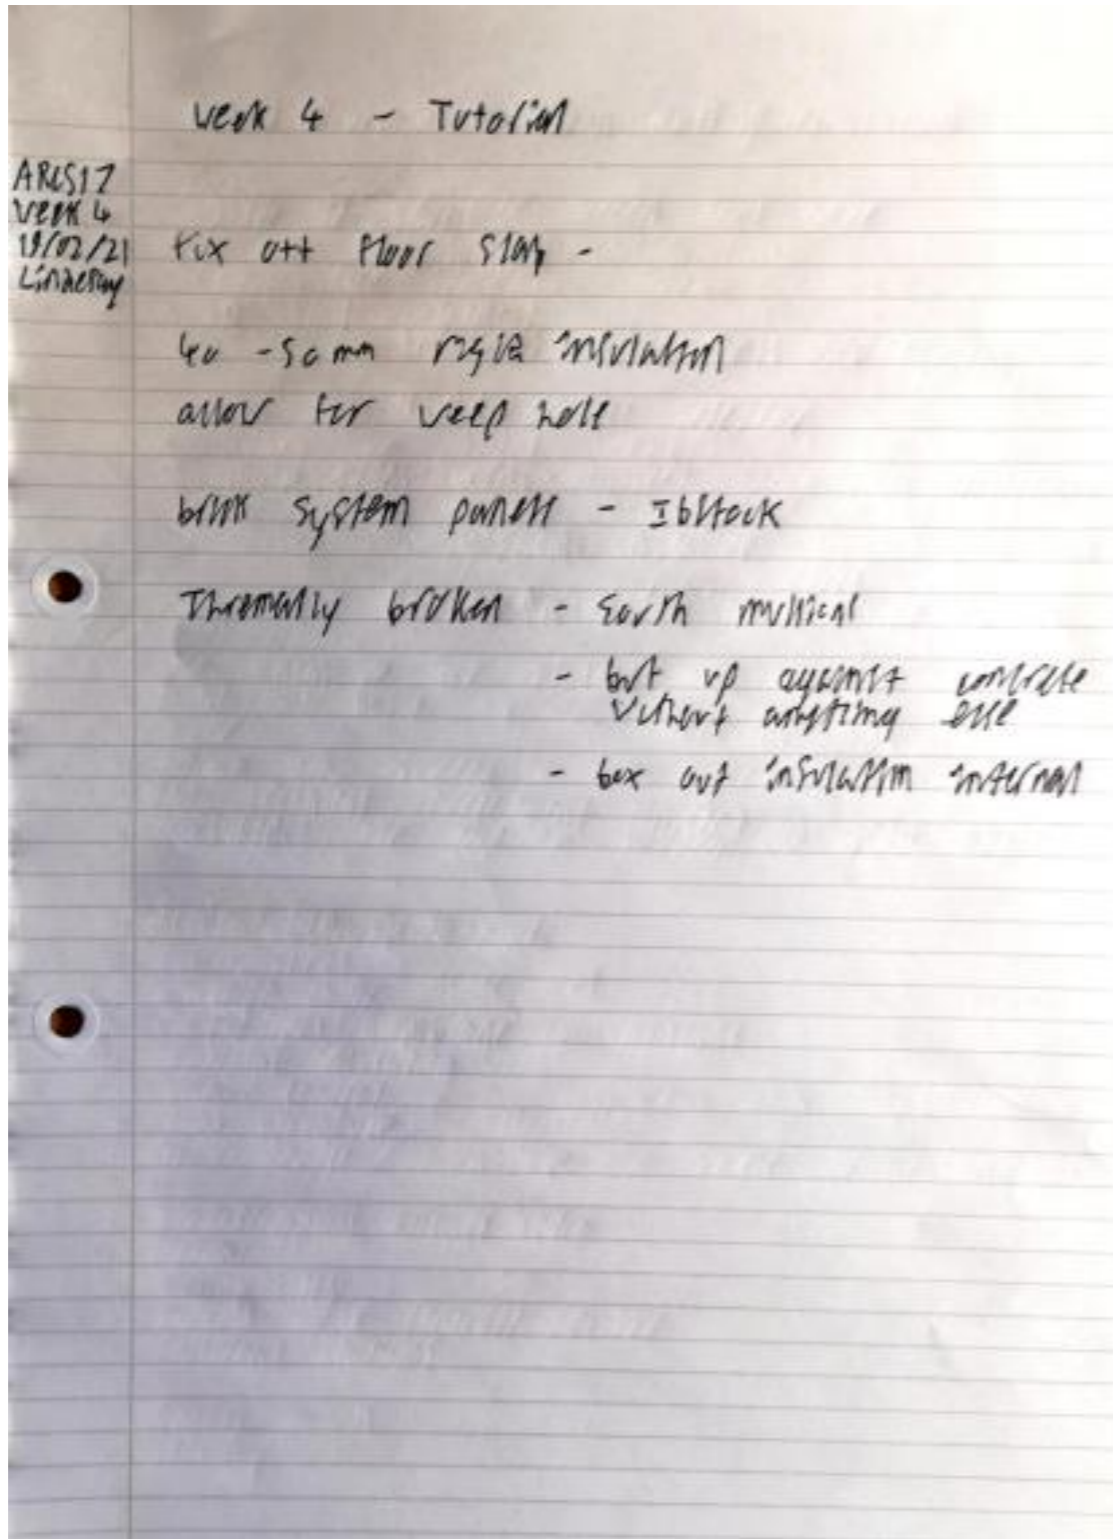 Week 4 - Tutorial
ARCS17
Week 4
19/02/21
Lindesay
Fix off floor slab -
40 - 50mm rigid insulation
allow for weep hole
brick system panels - Ibstock
Thremally broken -
- but up against concrete
without anything else
- box out insulation internal